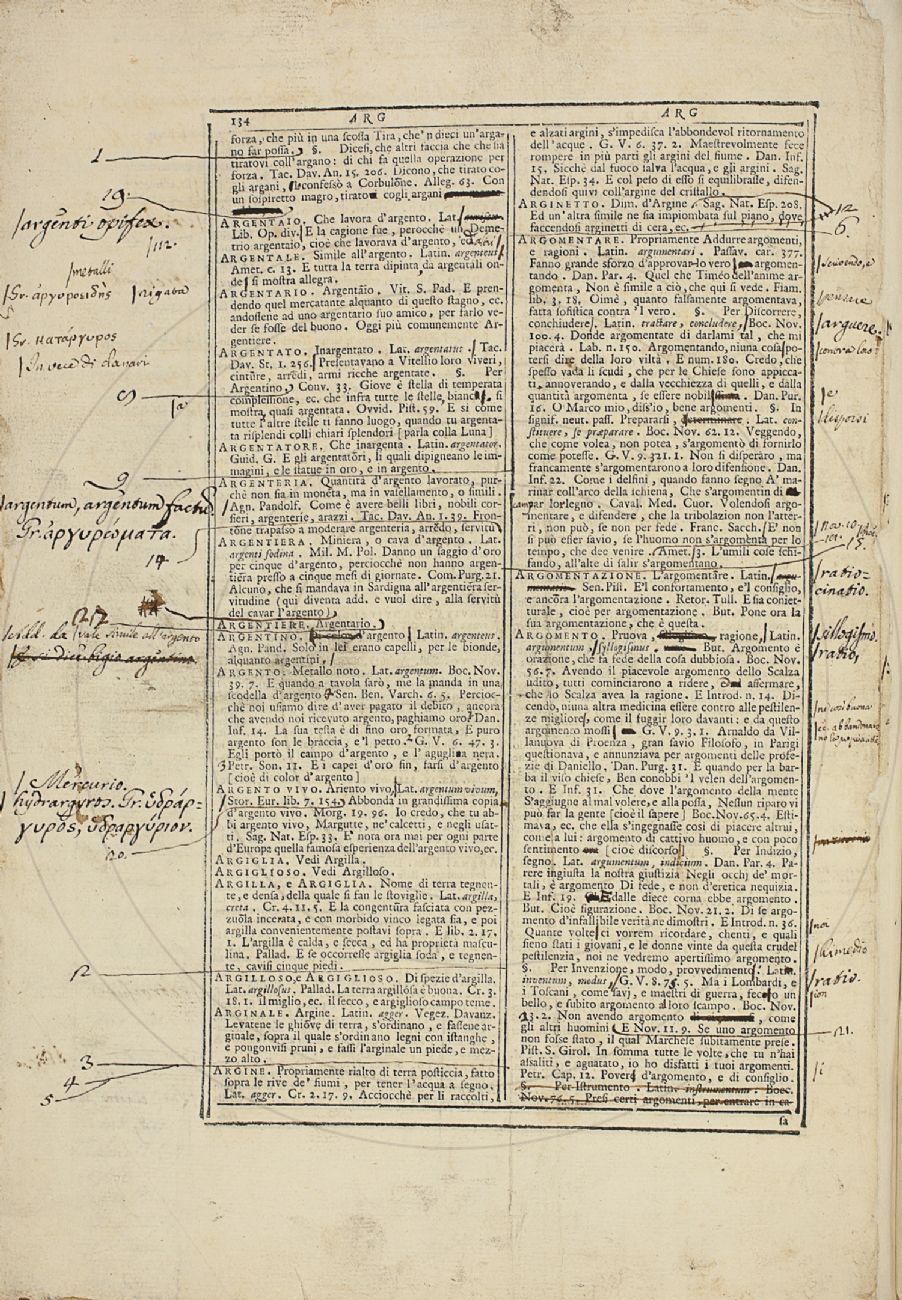 134 ARG ARG
forza, che più in una scossa Tira, che'n dieci un'arga-
no far possa. §. Dicesi, che altri faccia che che sia
tiratovi coll'argano: di chi fa quella operazione per
forza. Tac. Dav. An. 15. 206. Dicono, che tirato co-
gli argani, confessò a Corbulone. Alleg. 63. Con
un sospiretto magro, tirato cogli argani
ARGENTAIO. Che lavora d'argento. Lat.
Lib. Op. div. E la cagione fue, perocchè un Deme-
trio argentaio, cioè che lavorava d'argento, ec.
ARGENTALE. Simile all'argento. Latin. argenteus
Amet. c. 13. E tutta la terra dipinta da argentali on-
de si mostra allegra.
ARGENTARIO. Argentàio. Vit. S. Pad. E pren-
dendo quel mercatante alquanto di questo stagno, ec.
andossene ad uno argentario suo amico, per farlo ve-
der se fosse del buono. Oggi più comunemente Ar-
gentiere.
ARGENTATO. Inargentato. Lat. argentatus. Tac.
Dav. St. 1. 256. Presentavano a Vitellio loro viveri,
cinture, arredi, armi ricche argentate. §. Per
Argentino. Conv. 33. Giove è stella di temperata
complessione, ec. che infra tutte le stelle, bianca si
mostra, quasi argentata. Ovvid. Pist. 59. E sì come
tutte l'altre stelle ti fanno luogo, quando tu argenta-
ta risplendi colli chiari splendori [parla colla Luna]
ARGENTATORE. Che inargenta. Latin. argentator.
Guid. G. E gli argentatori, li quali dipigneano le im-
magini, e le statue in oro, e in argento.
ARGENTERIA. Quantità d'argento lavorato, pur-
chè non sia in moneta, ma in vasellamento, o simili.
Agn. Pandolf. Come è avere belli libri, nobili cor-
sieri, argenterie, arazzi. Tac. Dav. An. 1. 39. Fron-
tone trapassò a moderare argenteria, arredo, servitù
ARGENTIERA. Miniera, o cava d'argento. Lat.
argenti fodina. Mil. M. Pol. Danno un saggio d'oro
per cinque d'argento, perciocchè non hanno argen-
tiera presso a cinque mesi di giornate. Com. Purg. 21.
Alcuno, che si mandava in Sardigna all'argentiera ser-
vitudine (qui diventa add. e vuol dire, alla servitù
del cavar l'argento)
ARGENTIERE. Argentario.
ARGENTINO. d'argento Latin. argenteus.
Agn. Pand. Solo in lei erano capelli, per le bionde,
alquanto argentini.
ARGENTO. Metallo noto. Lat. argentum. Boc. Nov.
39. 7. E quando a tavola sarò, me la manda in una
scodella d'argento. Sen. Ben. Varch. 6. 5. Percioc-
chè noi usiamo dire d'aver pagato il debito, ancora
che avendo noi ricevuto argento, paghiamo oro. Dan.
Inf. 14. La sua testa è di fino oro formata, E puro
argento son le braccia, e 'l petto. G. V. 6. 47. 3.
Egli portò il campo d'argento, e l'aguglia nera.
Petr. Son. 11. E i capei d'oro fin, farsi d'argento
[cioè di color d'argento]
ARGENTO VIVO. Ariento vivo, Lat. argentum vivum,
Stor. Eur. lib. 7. 154. Abbonda in grandissima copia
d'argento vivo. Morg. 19. 96. Io credo, che tu ab-
bi argento vivo, Margutte, ne'calcetti, e negli usat-
ti. Sag. Nat. Esp. 33. E' nota ora mai per ogni parte
d'Europe quella famosa esperienza dell'argento vivo, ec.
ARGIGLIA. Vedi Argilla.
ARGIGLIOSO. Vedi Argilloso.
ARGILLA, e ARGIGLIA. Nome di terra tegnen-
te, e densa, della quale si fan le stoviglie. Lat. argilla,
creta. Cr. 4. 11. 5. E la congentura fasciata con pez-
zuola incerata, e con morbido vinco legata sia, e poi
argilla convenientemente postavi sopra. E lib. 2. 17.
1. L'argilla è calda, e secca, ed ha proprietà mascu-
lina. Pallad. E se occorresse argiglia soda, e tegnen-
te, cavisi cinque piedi.
ARGILLOSO, e ARGIGLIOSO. Di spezie d'argilla.
Lat. argillosus. Pallad. La terra argillosa è buona. Cr. 3.
18. 1. il miglio, ec. il secco, e argiglioso campo teme.
ARGINALE. Argine. Latin. agger. Vegez. Davanz.
Levatene le ghiove di terra, s'ordinano, e fassene ar-
ginale, sopra il quale s'ordinano legni con istanghe,
e pongonvisi pruni, e fassi l'arginale un piede, e mez-
zo alto.
ARGINE. Propriamente rialto di terra posticcia, fatto
sopra le rive de' fiumi, per tener l'acqua a segno.
Lat. agger. Cr. 2. 17. 9. Acciocchè per li raccolti,
e alzati argini, s'impedisca l'abbondevol ritornamento
dell'acque. G. V. 6. 37. 2. Maestrevolmente fece
rompere in più parti gli argini del fiume. Dan. Inf.
15. Sicchè dal fuoco salva l'acqua, e gli argini. Sag.
Nat. Esp. 34. E col peso di esso si equilibrasse, difen-
dendosi quivi coll'argine del cristallo.
ARGINETTO. Dim. d'Argine. Sag. Nat. Esp. 208.
Ed un'altra simile ne sia impiombata sul piano, dove
faccendosi arginetti di cera, ec.
ARGOMENTARE. Propriamente Addurre argomenti,
e ragioni. Latin. argumentari. Passav. car. 377.
Fanno grande sforzo d'approvarlo vero argomen-
tando. Dan. Par. 4. Quel che Timeo dell'anime ar-
gomenta, Non è simile a ciò, che qui si vede. Fiam.
lib. 3. 18. Oimè, quanto falsamente argomentava,
fatta sofistica contra 'l vero. §. Per Discorrere,
conchiudere. Latin. tractare, concludere, Boc. Nov.
100. 4. Donde argomentate di darlami tal, che mi
piacerà. Lab. n. 150. Argomentando, niuna cosa po-
tersi dire della loro viltà. E num. 180. Credo, che
spesso vada li scudi, che per le Chiese sono appicca-
ti, annoverando, e dalla vecchiezza di quelli, e dalla
quantità argomenta, se essere nobil Dan. Pur.
16. O Marco mio, diss'io, bene argomenti. §. In
signif. neut. pass. Prepararsi, Lat. con-
stituere, se præparare. Boc. Nov. 62. 12. Veggendo,
che come volea, non potea, s'argomentò di fornirlo
come potesse. G. V. 9. 321. 1. Non si disperaro, ma
francamente s'argomentarono a loro difensione. Dan.
Inf. 22. Come i delfini, quando fanno segno A' ma-
rinar coll'arco della schiena, Che s'argomentin di
campar lor legno. Caval. Med. Cuor. Volendosi argo-
mentare, e difendere, che la tribolazion non l'atter-
ri, non può, se non per fede. Franc. Sacch. E' non
si può esser savio, se l'huomo non s'argomenta per lo
tempo, che dee venire. Amet. 3. L'umili cose schi-
fando, all'alte di salir s'argomentano.
ARGOMENTAZIONE. L'argomentare. Latin.
Sen. Pist. E'l confortamento, e'l consiglio,
e ancora l'argomentazione. Retor. Tull. E sia coniet-
turale, cioè per argomentazione. But. Pone ora la
sua argomentazione, che è questa.
ARGOMENTO. Pruova, ragione, Latin.
argumentum, syllogismus. But. Argomento è
orazione, che fa fede della cosa dubbiosa. Boc. Nov.
56. 7. Avendo il piacevole argomento dello Scalza
udito, tutti cominciarono a ridere, assermare,
che lo Scalza avea la ragione. E Introd. n. 14. Di-
cendo, niuna altra medicina essere contro alle pestilen-
ze migliore, come il fuggir loro davanti: e da questo
argomento mossi G. V. 9. 3. 1. Arnaldo da Vil-
lanuova di Proenza, gran savio Filosofo, in Parigi
questionava, e annunziava per argomenti delle profe-
zie di Daniello. Dan. Purg. 31. E quando per la bar-
ba il viso chiese, Ben conobbi 'l velen dell'argomen-
to. E Inf. 31. Che dove l'argomento della mente
S'aggiugne al mal volere, e alla possa, Nessun riparo vi
può far la gente [cioè il sapere] Boc. Nov. 65. 4. Esti-
mava, ec. che ella s'ingegnasse così di piacere altrui,
come a lui: argomento di cattivo huomo, e con poco
sentimento [cioè discorso] §. Per Indizio,
segno. Lat. argumentum, indicium. Dan. Par. 4. Pa-
rere ingiusta la nostra giustizia Negli occhj de' mor-
tali, è argomento Di fede, e non d'eretica nequizia.
E Inf. 19. dalle diece corna ebbe argomento.
But. Cioè figurazione. Boc. Nov. 21. 2. Di se argo-
mento d'infallibile verità ne dimostri. E Introd. n. 36.
Quante volte ci vorrem ricordare, chenti, e quali
sieno stati i giovani, e le donne vinte da questa crudel
pestilenzia, noi ne vedremo apertissimo argomento.
§. Per Invenzione, modo, provvedimento. Latin.
inventum, modus, G. V. 8. 75. 5. Ma i Lombardi, e
i Toscani, come savj, e maestri di guerra, feceso un
bello, e subito argomento a loro scampo. Boc. Nov.
23. 2. Non avendo argomento come
gli altri huomini E Nov. 11. 9. Se uno argomento
non fosse stato, il qual Marchese subitamente prese.
Pist. S. Girol. In somma tutte le volte, che tu n'hai
assaliti, e aguatato, io ho disfatti i tuoi argomenti.
Petr. Cap. 12. Povero d'argomento, e di consiglio.
§. Per Istrumento. Latin. instrumentum. Bocc.
Nov. 76. 5. Presi certi argomenti, per entrare in ca-
sa
1
19.
argenti opifex.
112.
metalli
Gr. ἀργυροειδής
rigava
Gr. κατάργυρος
In vece di danari
9
argentum, argentum factū.
Gr. ἀργυρώματα.
14
1217
Mercurio.
hydrargyros. Gr. ὑδράρ-
γυρος, ὑδραργύριον.
20.
2
3
4
5
12
6.
arguere.
disporsi
15.
ratio-
cinatio.
sillogismo.
ratio,
rimedio
ratio.
21.